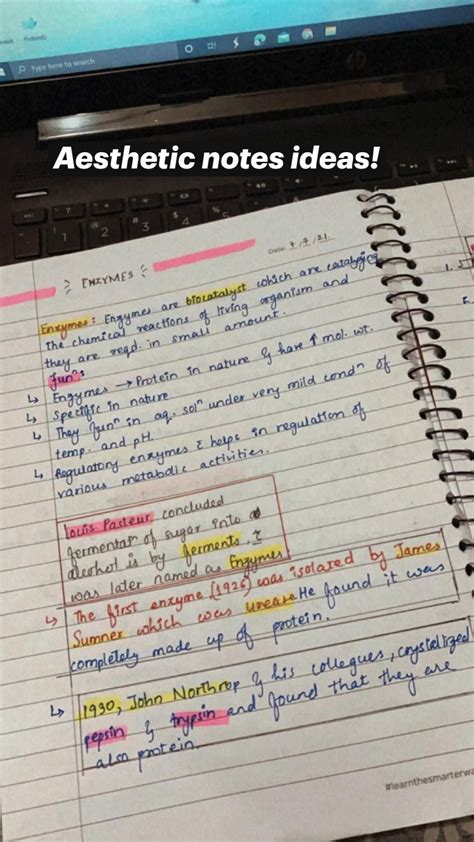 Type here to search
Aesthetic notes ideas!
1 2 3 4 5
Date: 7, 7, 21.
ENZYMES
Enzymes: Enzymes are biocatalyst which are catalyzing
the chemical reactions of living organism and
they are reqd. in small amount.
funⁿ:
↳ Enzymes → Protein in nature & have ↑ mol. wt.
↳ Specific in nature
↳ They funⁿ in aq. solⁿ under very mild condⁿ of
temp. and pH.
↳ Regulatory enzymes & helps in regulation of
various metabolic activities.
Louis Pasteur concluded
fermentatⁿ of sugar into
alcohol is by ferments,
was later named as Enzymes
↳ The first enzyme (1926) was isolated by James
Sumner which was urease He found it was
completely made up of protein.
↳ 1930, John Northrop & his collegues, crystelized
pepsin & trypsin and found that they are
also protein.
1.
#learnthesmarterwa